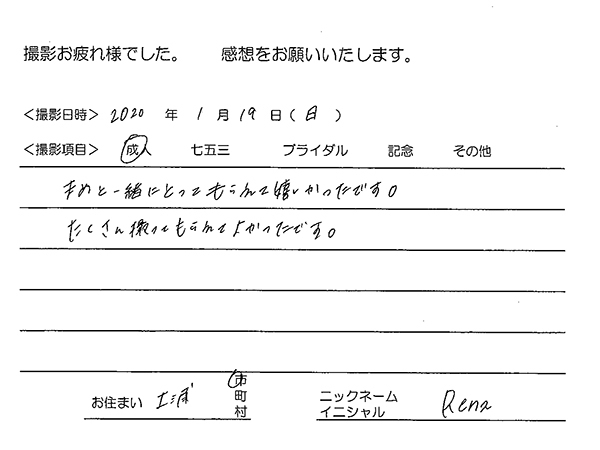 撮影お疲れ様でした。 感想をお願いいたします。
<撮影日時> 2020 年 1 月 19 日 ( 日 )
<撮影項目> 成人 七五三 ブライダル 記念 その他
と一緒にとってもらえて嬉しかったです。
たくさん撮ってもらえてよかったです。
お住まい 土浦 市町村 ニックネーム イニシャル Rena